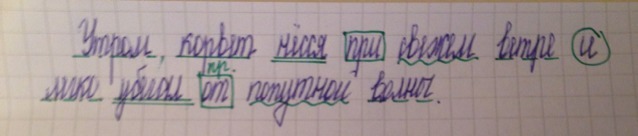 Утром, корвет нёсся при свежем ветре и
пр.
легко убегал от попутной волны.